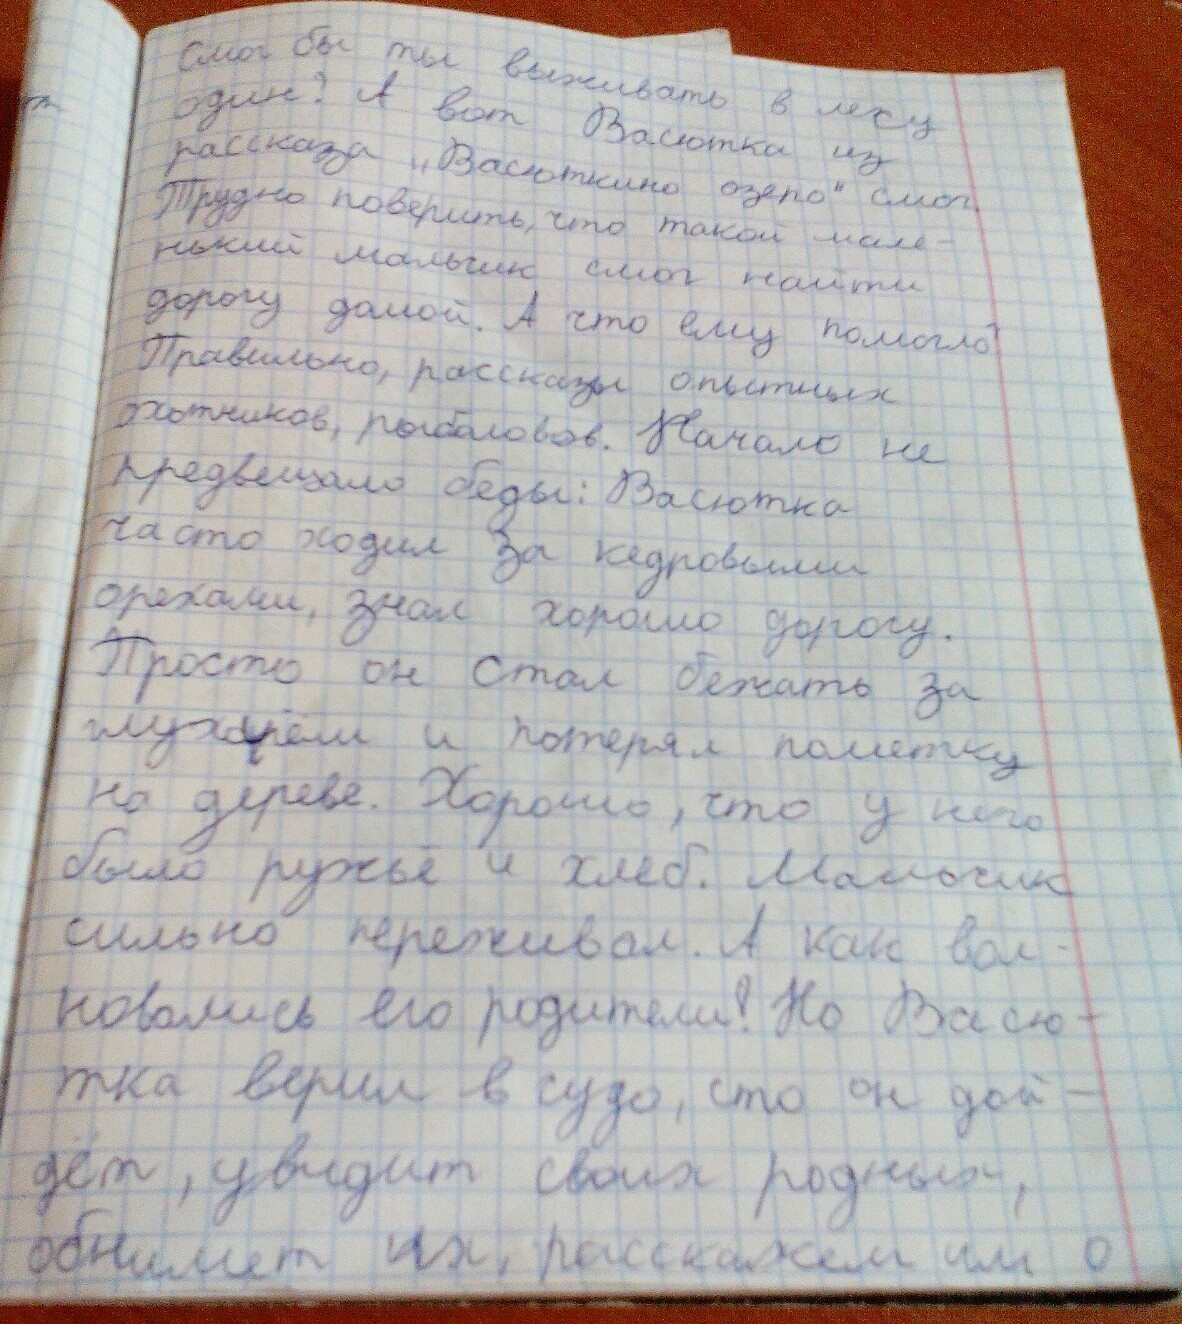 Смог бы ты выживать в лесу
один? А вот Васютка из
рассказа „Васюткино озеро" смог.
Трудно поверить, что такой мале-
нький мальчик смог найти
дорогу домой. А что ему помогло?
Правильно, рассказы опытных
охотников, рыболовов. Начало не
предвещало беды: Васютка
часто ходил за кедровыми
орехами, знал хорошо дорогу.
Просто он стал бежать за
глухарём и потерял пометку
на дереве. Хорошо, что у него
было ружьё и хлеб. Мальчик
сильно переживал. А как вол-
новались его родители! Но Васю-
тка верил в чудо, что он дой-
дёт, увидит своих родных,
обнимет их, расскажет им о